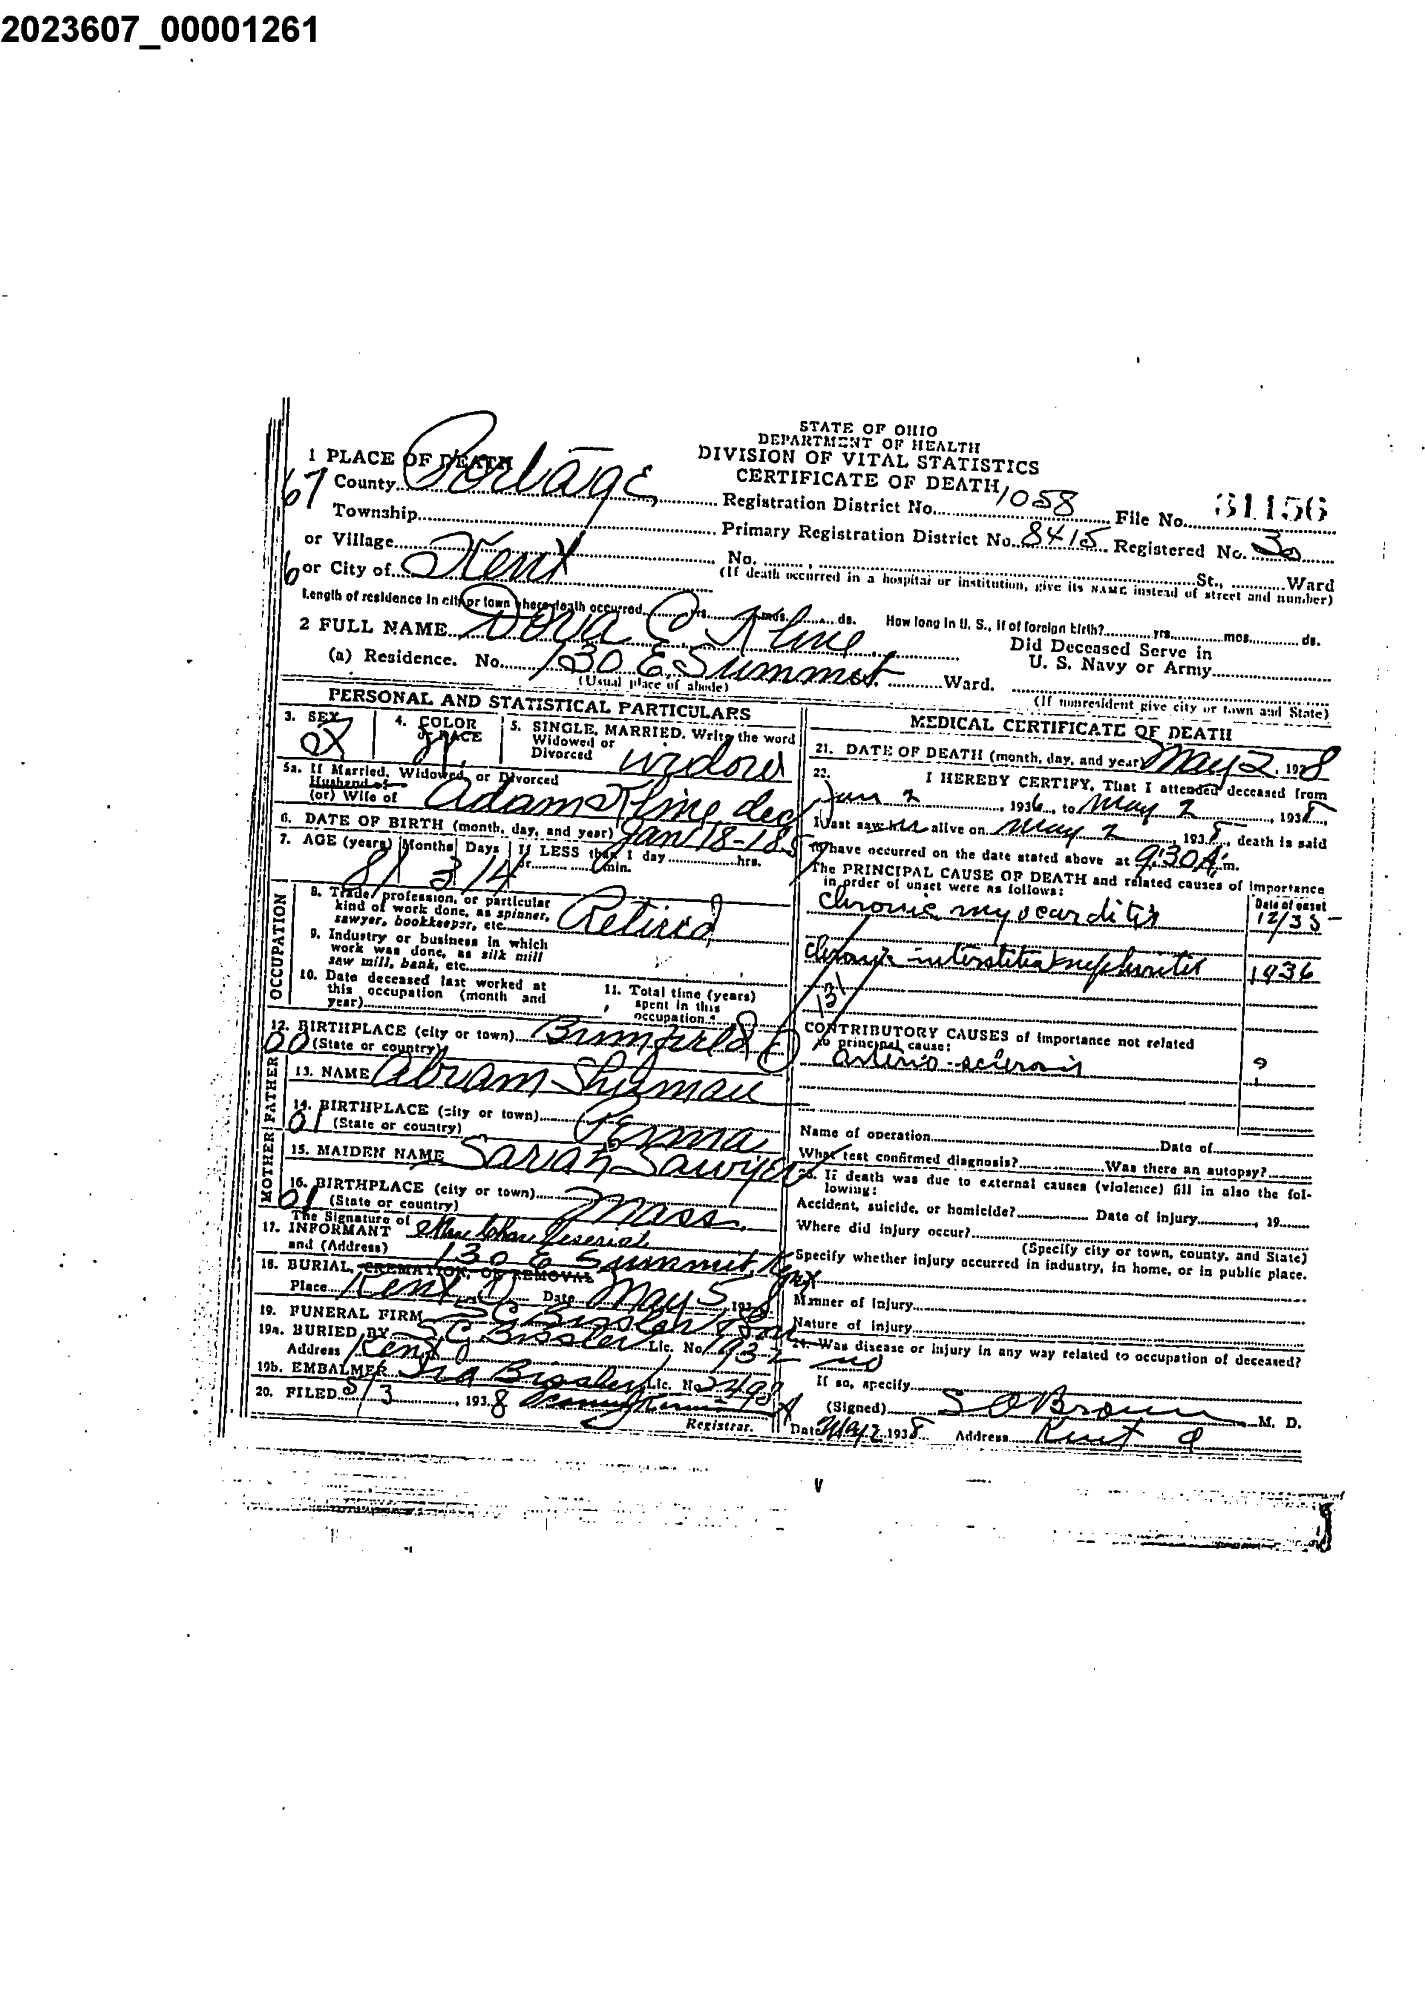 2023607_00001261
STATE OF OHIO
DEPARTMENT OF HEALTH
DIVISION OF VITAL STATISTICS
CERTIFICATE OF DEATH
1 PLACE OF DEATH
67 County Portage Registration District No. 1058 File No. 31156
Township Primary Registration District No. 8415 Registered No. 30
or Village No. St., Ward
6 or City of Kent (If death occurred in a hospital or institution, give its NAME instead of street and number)
Length of residence in city or town where death occurred yrs. mos. ds. How long in U. S., if of foreign birth? yrs. mos. ds.
2 FULL NAME Dora C Kline Did Deceased Serve in
U. S. Navy or Army
(a) Residence. No. 130 E. Summit St. Ward.
(Usual place of abode) (If nonresident give city or town and State)
PERSONAL AND STATISTICAL PARTICULARS
3. SEX 4. COLOR OR RACE 5. SINGLE, MARRIED, Write the word
Widowed or
Divorced widow
5a. If Married, Widowed, or Divorced
Husband of
(or) Wife of Adam Kline dec
6. DATE OF BIRTH (month, day, and year) Jan 18-185
7. AGE (years) Months Days If LESS than 1 day hrs.
or min.
81 3 14
OCCUPATION
8. Trade, profession, or particular
kind of work done, as spinner,
sawyer, bookkeeper, etc. Retired
9. Industry or business in which
work was done, as silk mill
saw mill, bank, etc.
10. Date deceased last worked at
this occupation (month and
year)
11. Total time (years)
spent in this
occupation
12. BIRTHPLACE (city or town) Brimfield O
00 (State or country)
FATHER
13. NAME Abram
14. BIRTHPLACE (city or town) Penna
01 (State or country)
MOTHER
15. MAIDEN NAME Sarah Sawyer
16. BIRTHPLACE (city or town) Mass.
01 (State or country)
The Signature of
17. INFORMANT
and (Address) 130 E Summit, Kent
18. BURIAL, CREMATION, OR REMOVAL
Place Kent O Date May 5 1938
19. FUNERAL FIRM S C Bissler & Son
19a. BURIED BY S. C. Bissler Lic. No. 1932
Address Kent O
19b. EMBALMER Ira Bissler Lic. No.
20. FILED 5/3, 1938
Registrar.
MEDICAL CERTIFICATE OF DEATH
21. DATE OF DEATH (month, day, and year) May 2, 1938
22. I HEREBY CERTIFY, That I attended deceased from
Jan 2, 1936, to May 2, 1938,
I last saw her alive on May 2, 1938, death is said
to have occurred on the date stated above at 9:30 A. m.
The PRINCIPAL CAUSE OF DEATH and related causes of importance
in order of onset were as follows:
Date of onset
chronic myocarditis 12/35
chronic interstitial nephritis 1936
131
CONTRIBUTORY CAUSES of importance not related
to principal cause:
arterio-sclerosis ?
Name of operation Date of
What test confirmed diagnosis? Was there an autopsy?
23. If death was due to external causes (violence) fill in also the fol-
lowing:
Accident, suicide, or homicide? Date of injury, 19
Where did injury occur?
(Specify city or town, county, and State)
Specify whether injury occurred in industry, in home, or in public place.
Manner of Injury
Nature of injury
24. Was disease or injury in any way related to occupation of deceased?
no
If so, specify
(Signed) S O Brown M. D.
Date May 2 1938 Address Kent O